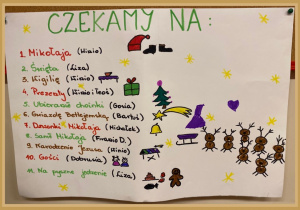 CZEKAMY NA:
1. Mikołaja (Kinio)
2. Święta (Liza)
3. Wigilię (Kinio)
4. Prezenty (Kinio i Teoś)
5. Ubieranie choinki (Gosia)
6. Gwiazdę Betlejemską (Bartuś)
7. Dzwonki Mikołaja (Michałek)
8. Sanie Mikołaja (Franio D.)
9. Narodzenie Jezusa (Kinio)
10. Gości (Dobrusia)
11. Na pyszne jedzenie (Liza)